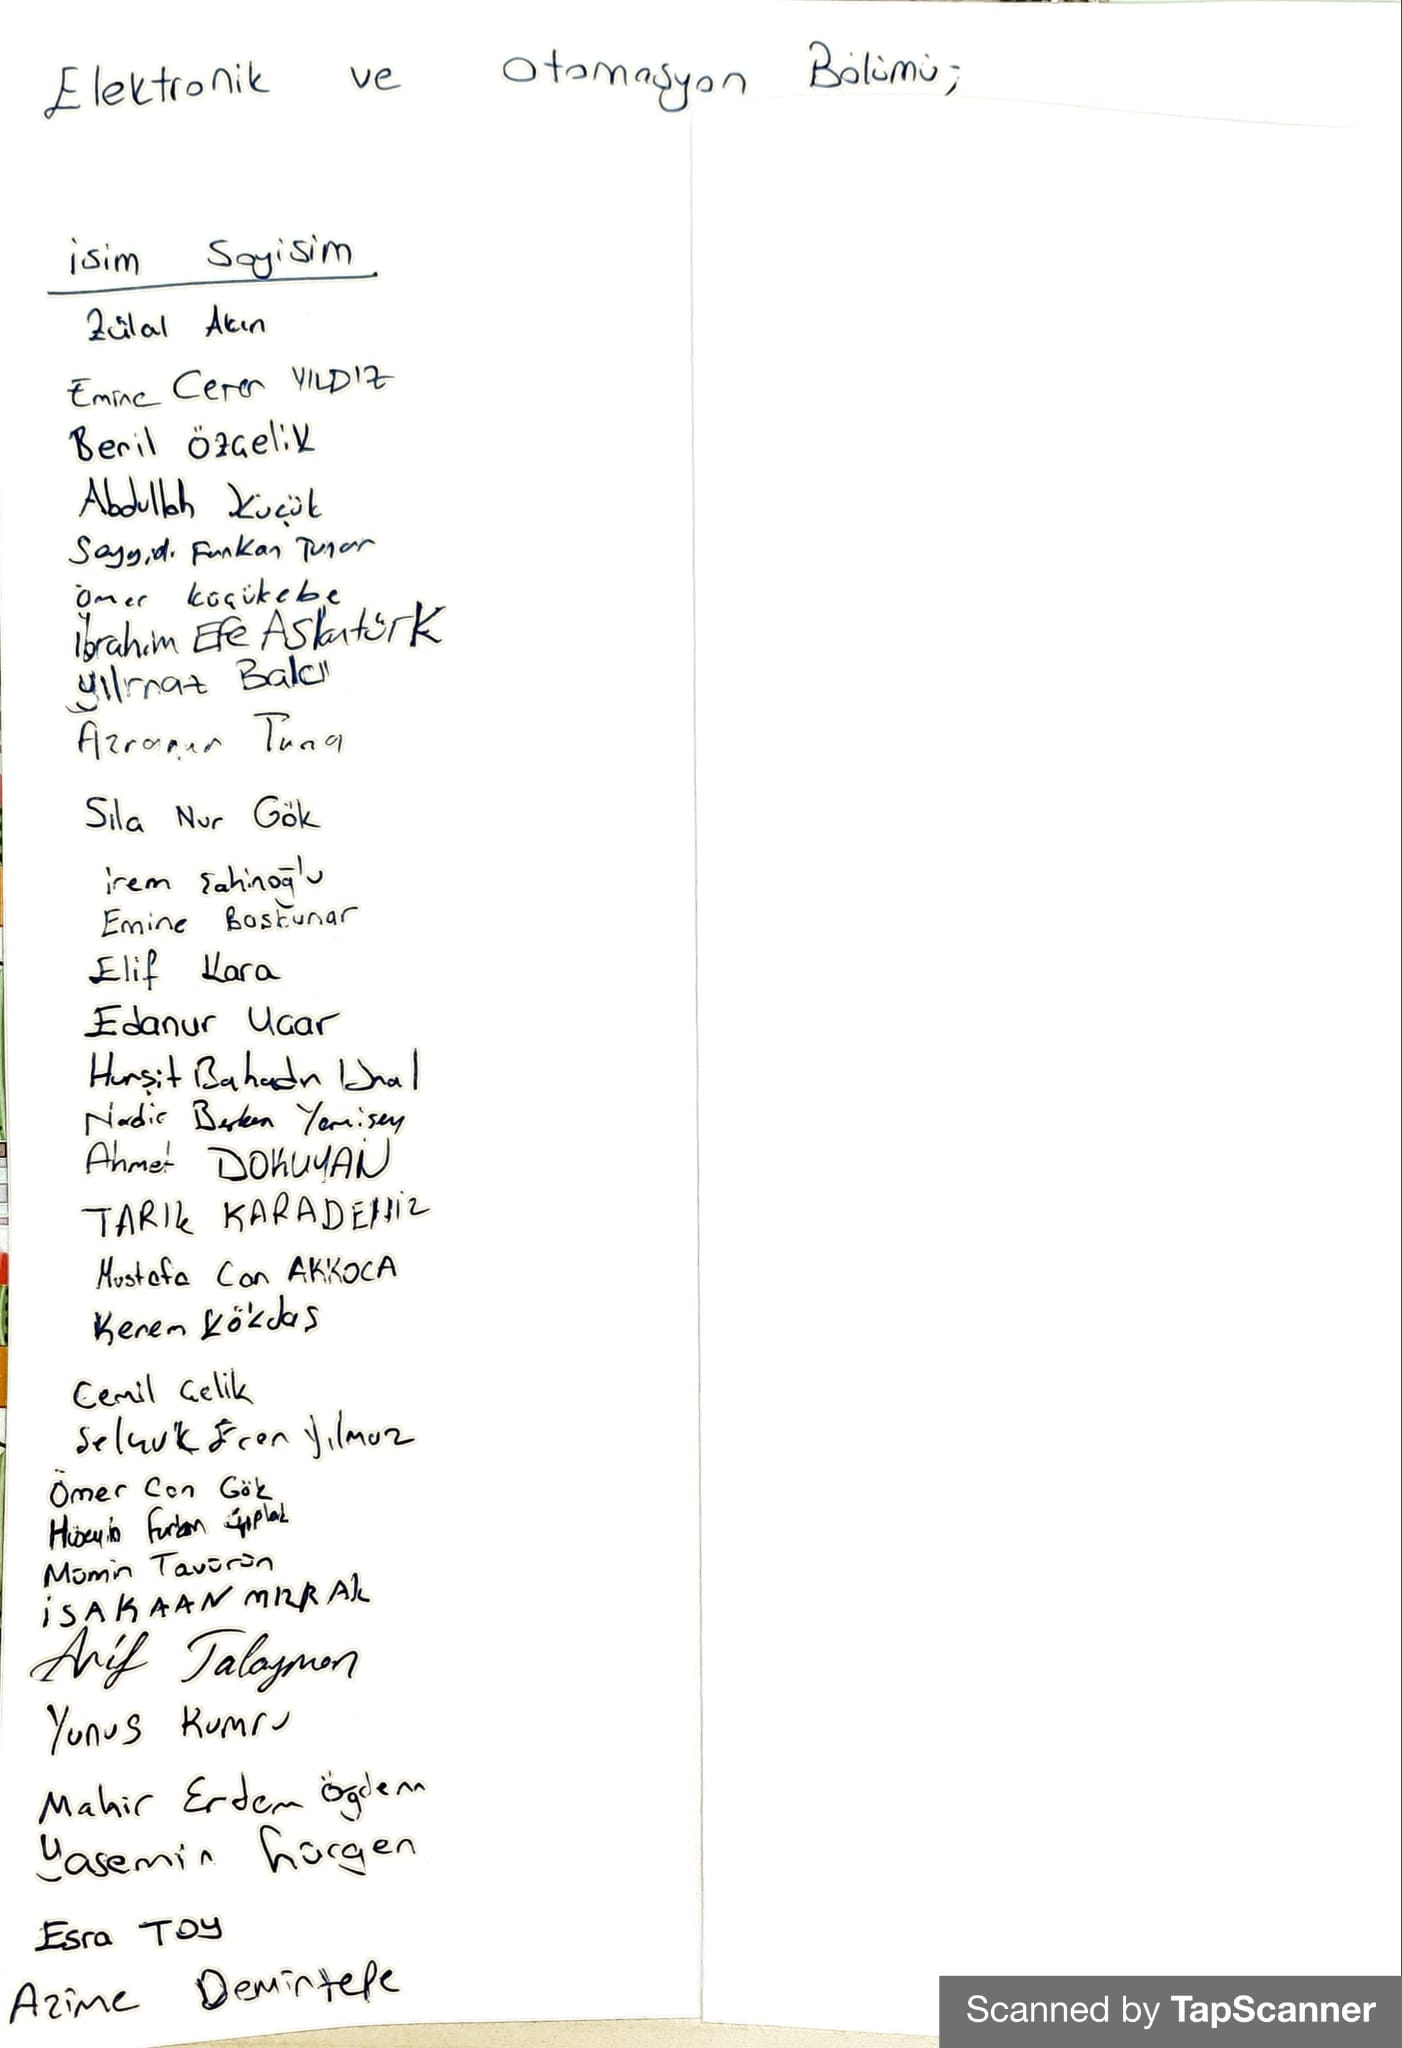 Elektronik ve Otomasyon Bölümü;
isim Soyisim
Zülal Akın
Emine Ceren YILDIZ
Beril Özçelik
Abdullah Küçük
Furkan Tunar
Ömer küçükebe
İbrahim Efe Aslantürk
Yılmaz Balcı
Azranur Tuna
Sıla Nur Gök
irem Şahinoğlu
Emine Bostunar
Elif Kara
Edanur Uçar
Hurşit Bahadır Ünal
Nadir Berken Yemisey
Ahmet DOKUYAN
TARIK KARADENİZ
Mustafa Can AKKOCA
Kerem Kökdaş
Cemil Çelik
Selçuk Eren Yılmaz
Ömer Can Gök
Hüseyin Furkan Çıplak
Mümin Tavürün
İSA KAAN MIZRAK
Arif Talayman
Yunus Kumru
Mahir Erdem Öğdem
Yasemin Gürgen
Esra TOY
Azime Demirtepe
Scanned by TapScanner